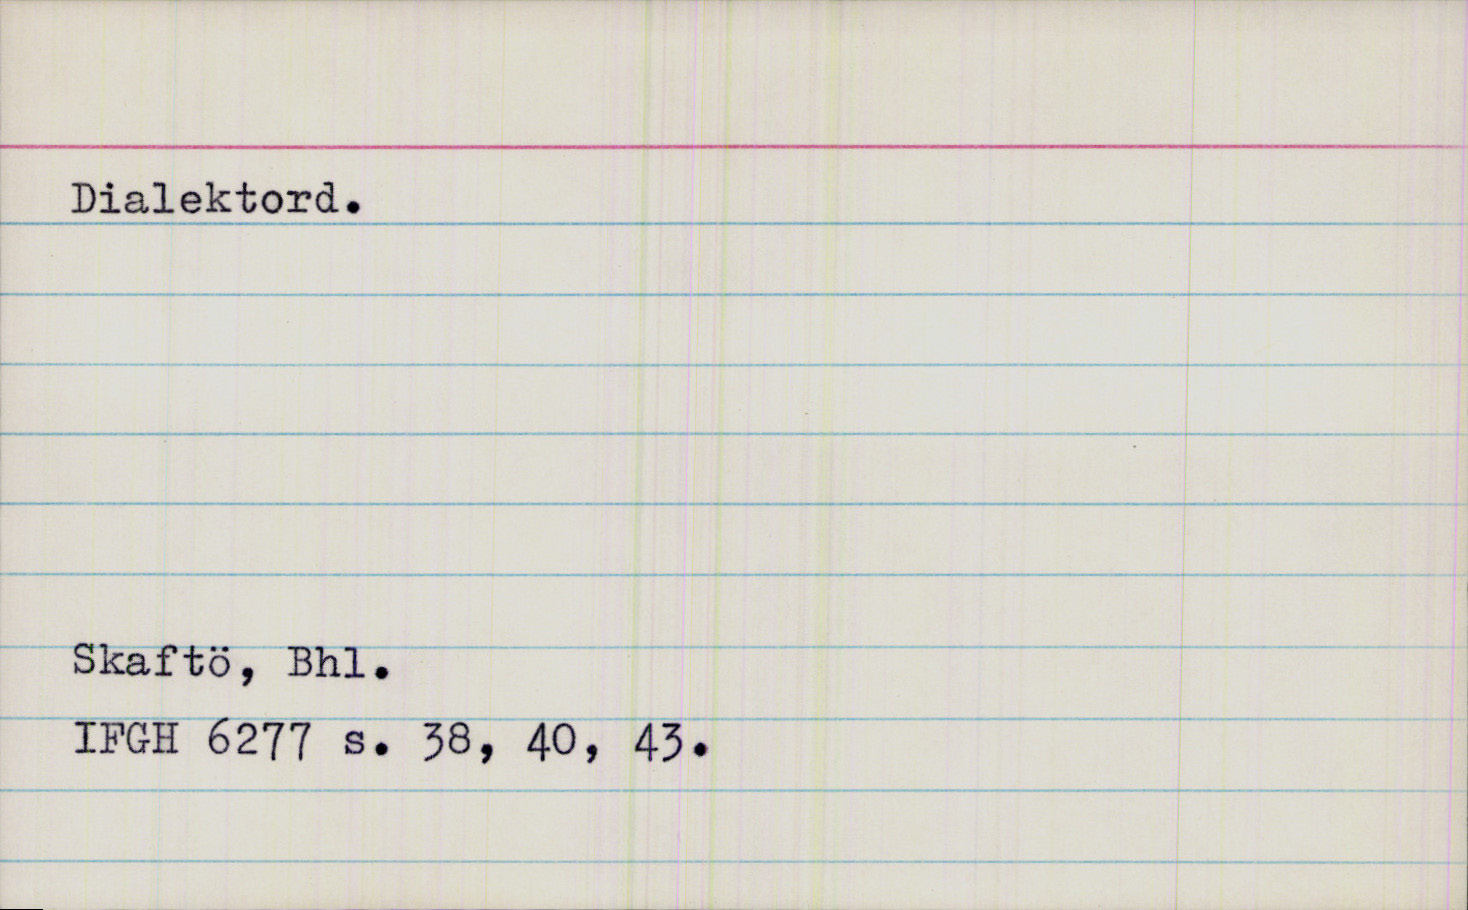 Dialektord.
Skaftö, Bhl.
IFGH 6277 s. 38, 40, 43.